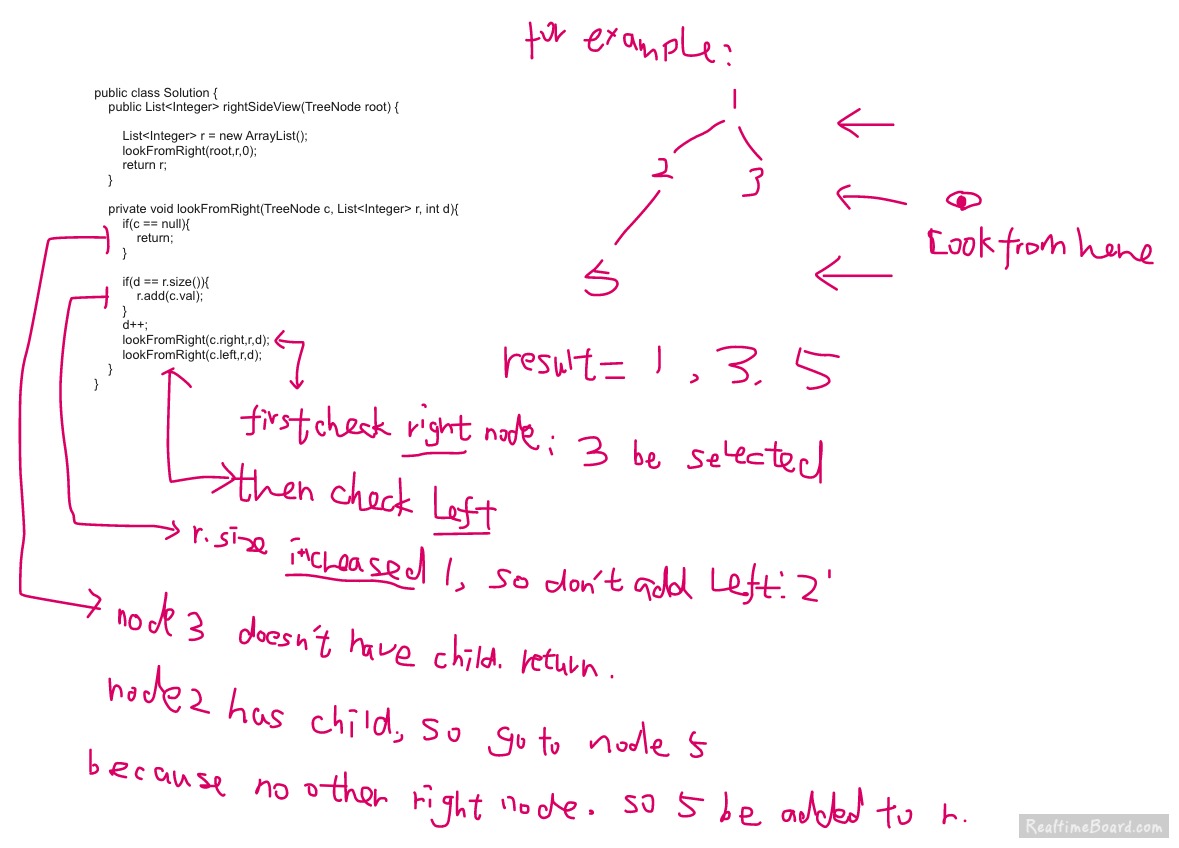 for example:
public class Solution {
public List<Integer> rightSideView(TreeNode root) {
List<Integer> r = new ArrayList();
lookFromRight(root,r,0);
return r;
}
private void lookFromRight(TreeNode c, List<Integer> r, int d){
if(c == null){
return;
}
if(d == r.size()){
r.add(c.val);
}
d++;
lookFromRight(c.right,r,d);
lookFromRight(c.left,r,d);
}
}
1
2 3
5
Look from here
result = 1, 3. 5
first check right node: 3 be selected
then check left
r.size increased 1, so don't add left: 2'
node 3 doesn't have child. return.
node 2 has child, so go to node 5
because no other right node. so 5 be added to r.
RealtimeBoard.com